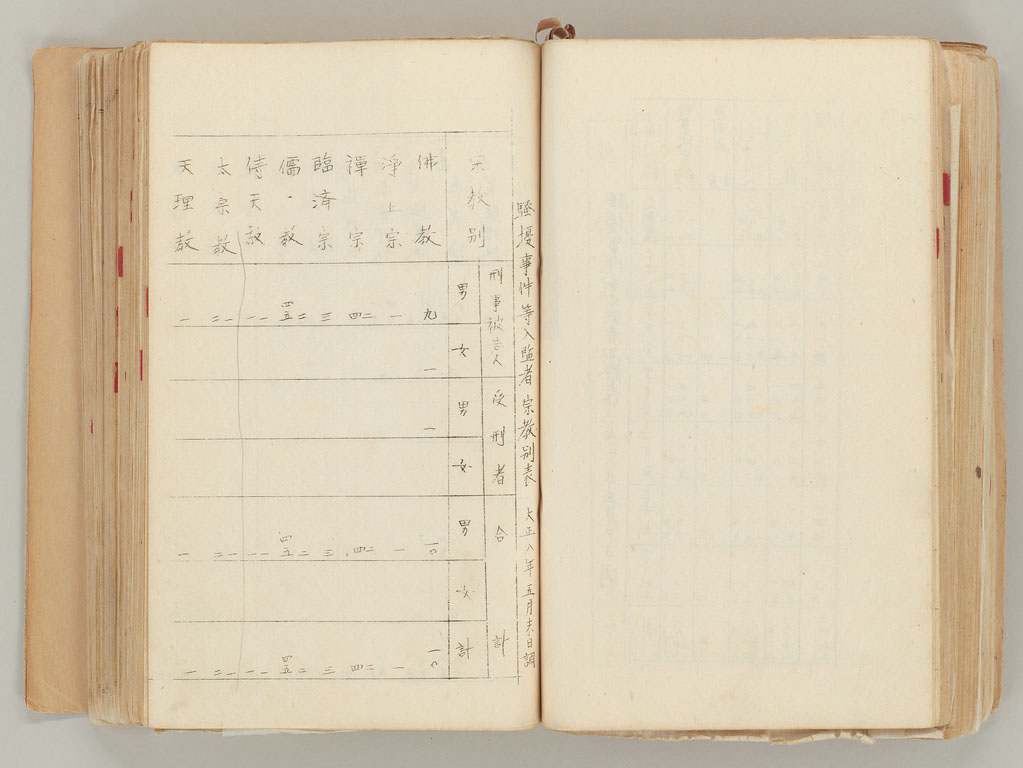 騒擾事件等入監者宗教別表 大正八年五月末日調
刑事被告人 受刑者 合計
宗教別 男 女 男 女 男 女 計
佛教 九 一 一 一〇 一〇
浄土宗 一 一 一
禪宗 二四 二四 二四
臨済宗 三 三 三
儒教 二四五 二四五 二四五
侍天教 一一 一一 一一
太宗教 一二 一二 一二
天理教 一 一 一